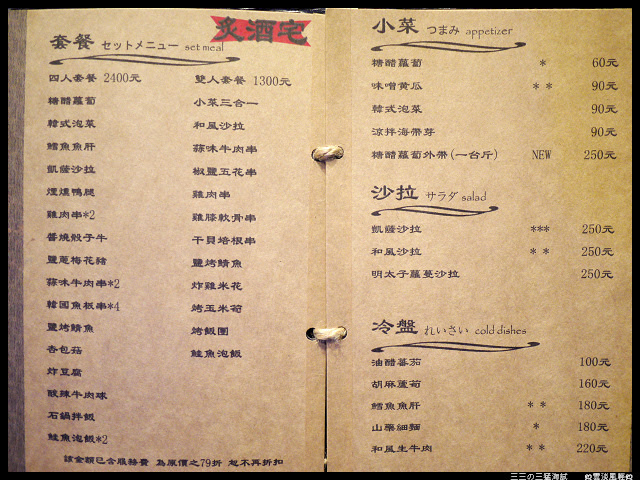 炙酒宅
套餐 セットメニュー set meal
四人套餐 2400元
糖醋蘿蔔
韓式泡菜
鱈魚魚肝
凱薩沙拉
煙燻鴨腿
雞肉串*2
醬燒骰子牛
鹽蔥梅花豬
蒜味牛肉串*2
韓國魚板串*4
鹽烤鯖魚
杏包菇
炸豆腐
酸辣牛肉球
石鍋拌飯
鮭魚泡飯*2
雙人套餐 1300元
小菜三合一
和風沙拉
蒜味牛肉串
椒鹽五花串
雞肉串
雞膝軟骨串
干貝培根串
鹽烤鯖魚
炸雞米花
烤玉米筍
烤飯團
鮭魚泡飯
該金額已含服務費 為原價之79折 恕不再折扣
小菜 つまみ appetizer
糖醋蘿蔔 * 60元
味噌黄瓜 * * 90元
韓式泡菜 90元
涼拌海帶芽 90元
糖醋蘿蔔外帶(一台斤) NEW 250元
沙拉 サラダ salad
凱薩沙拉 *** 250元
和風沙拉 * * 250元
明太子蘿蔓沙拉 250元
冷盤 れいさい cold dishes
油醋蕃茄 100元
胡麻蘆筍 160元
鱈魚魚肝 * * 180元
山藥細麵 * 180元
和風生牛肉 * * 220元
三三の三猛海賊 雲淡風輕